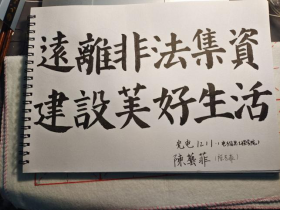 遠離非法集資
建設美好生活
充电1211
陳藝菲